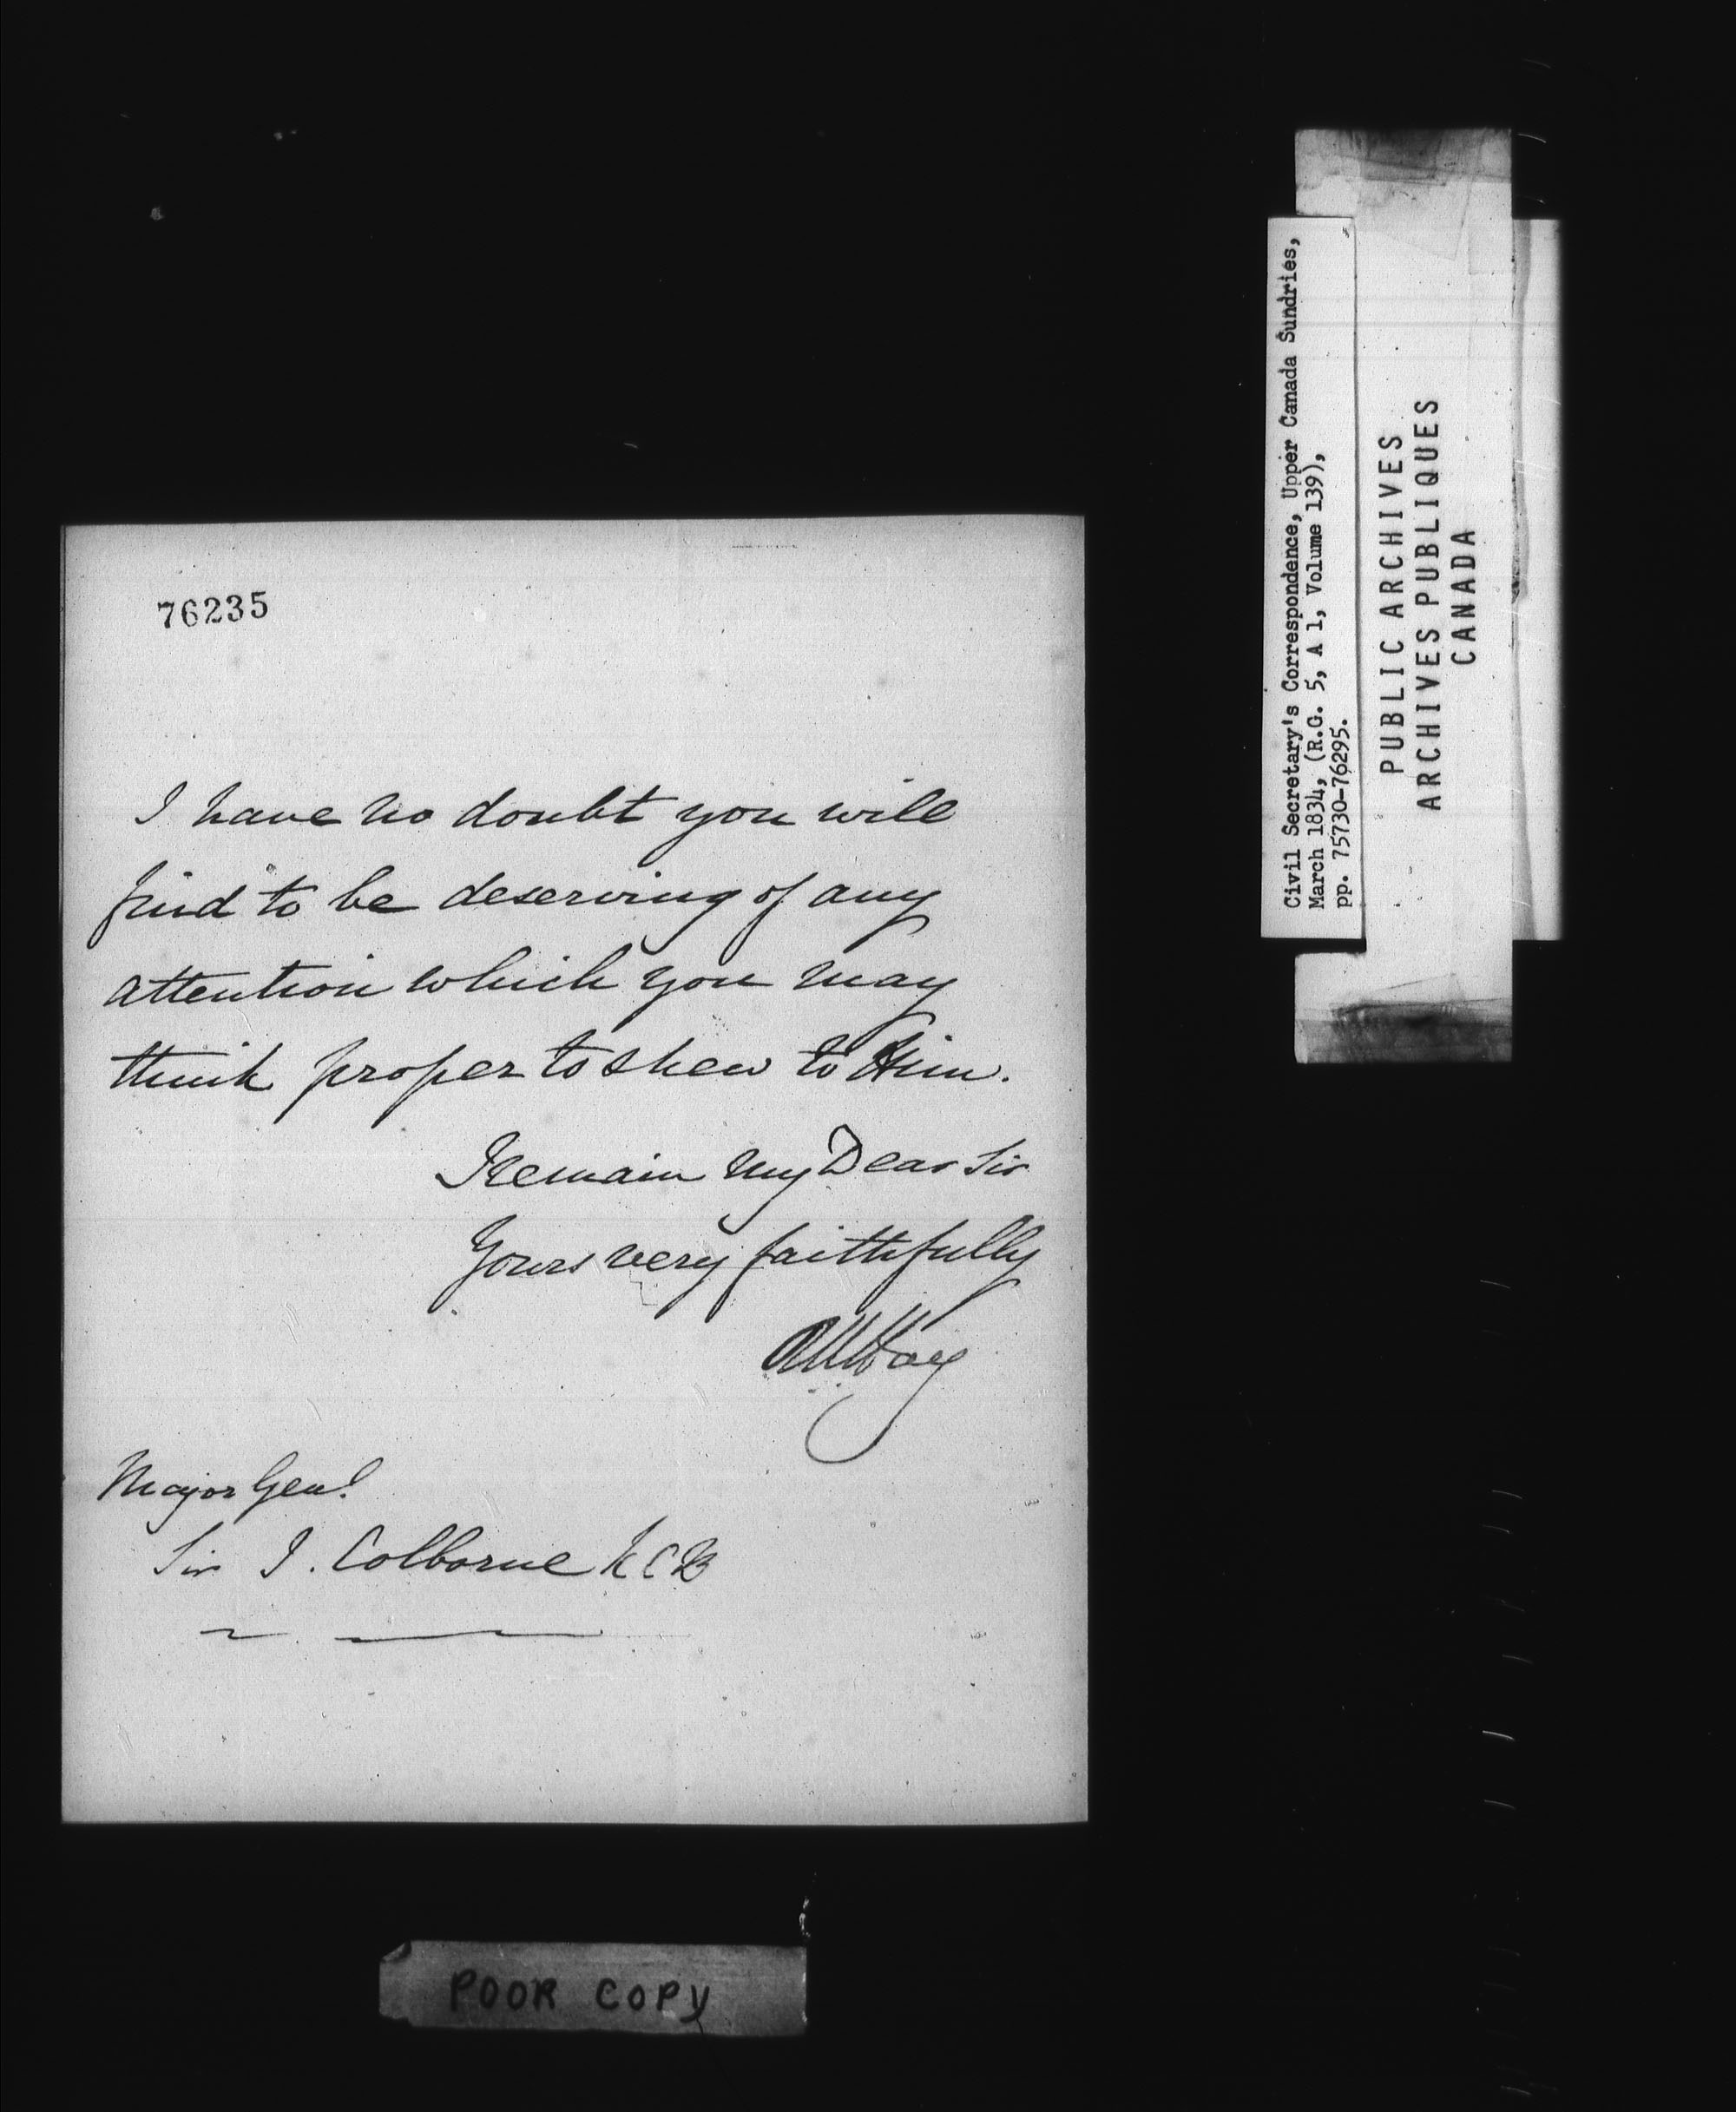 76235
I have no doubt you will
find to be deserving of any
attention which you may
think proper to shew to Him.
I remain My Dear Sir
Yours very faithfully
RWHay
Major Genl
Sir J. Colborne KCB
Civil Secretary's Correspondence, Upper Canada Sundries,
March 1834, (R.G. 5, A 1, Volume 139),
pp. 75730-76295.
PUBLIC ARCHIVES
ARCHIVES PUBLIQUES
CANADA
POOR COPY